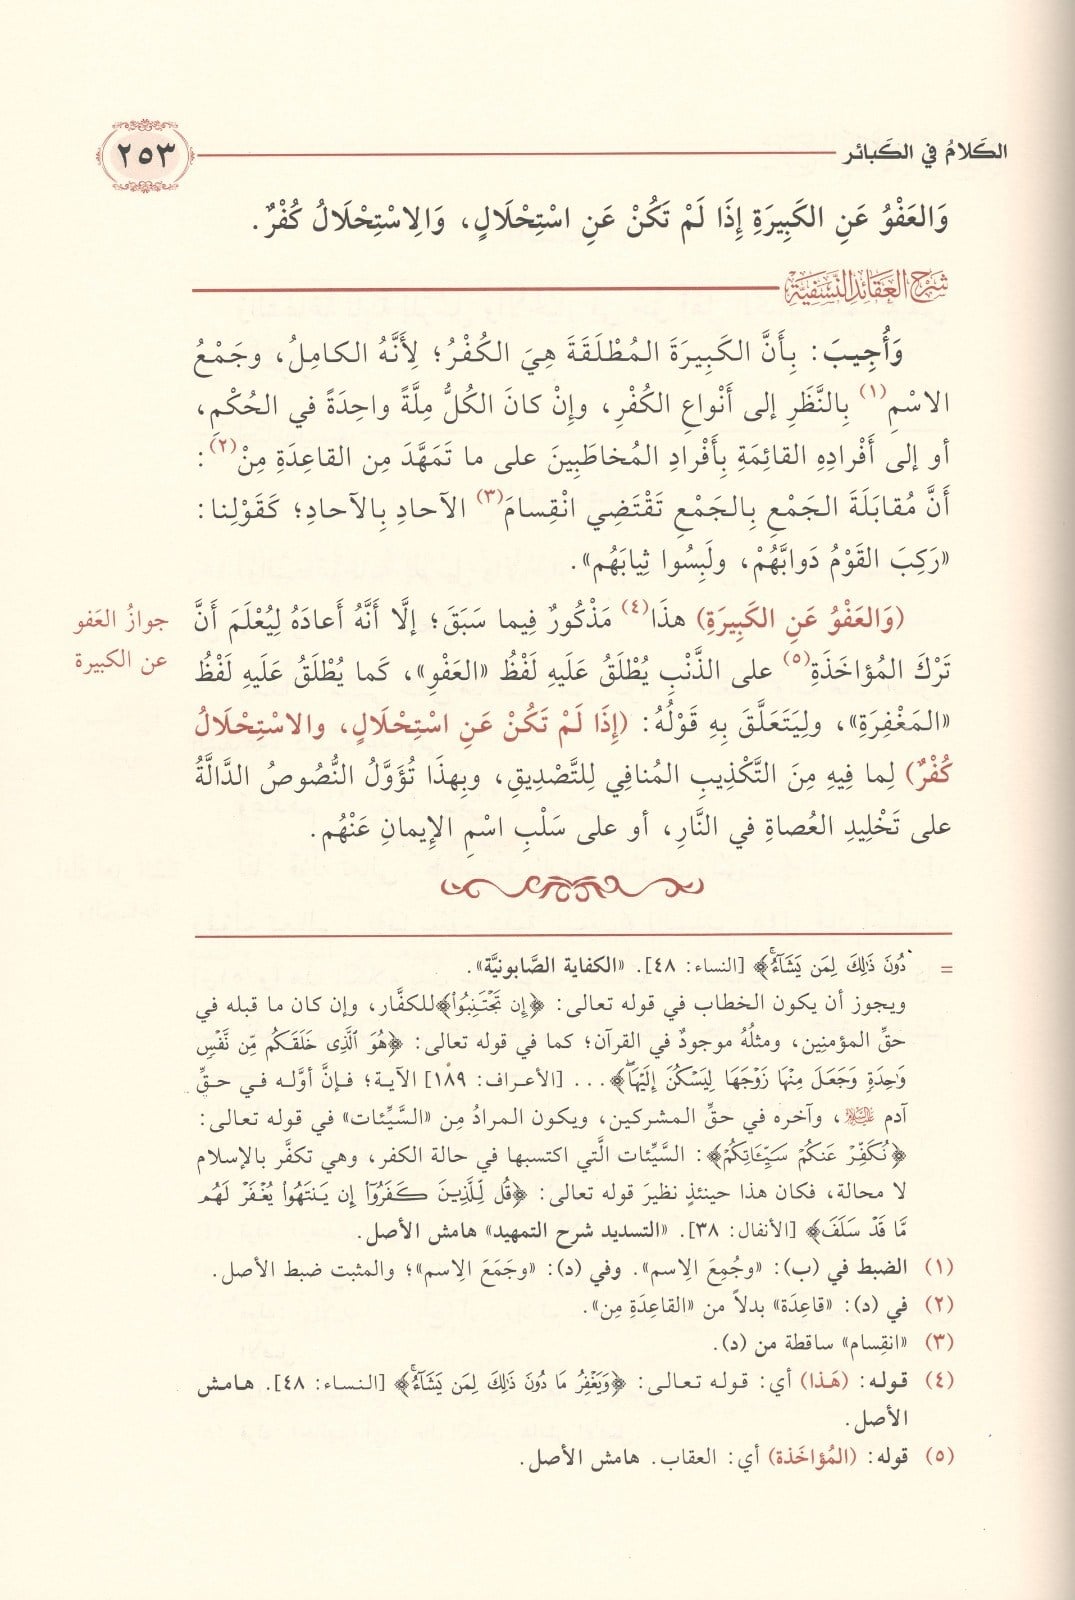 الكَلامُ في الكَبائر
٢٥٣
وَالعَفْوُ عَنِ الكَبِيرَةِ إِذَا لَمْ تَكُنْ عَنِ اسْتِحْلَالٍ، وَالِاسْتِحْلَالُ كُفْرٌ.
شرح العقائد النسفية
وَأُجِيبَ: بِأَنَّ الكَبِيرَةَ المُطْلَقَةَ هِيَ الكُفْرُ؛ لِأَنَّهُ الكامِلُ، وجَمْعُ
الاسْمِ(١) بِالنَّظَرِ إلى أَنْواعِ الكُفْرِ، وإِنْ كانَ الكُلُّ مِلَّةً واحِدَةً في الحُكْمِ،
أو إلى أَفْرادِهِ القائِمَةِ بِأَفْرادِ المُخاطَبِينَ على ما تَمَهَّدَ مِن القاعِدَةِ مِنْ(٢):
أَنَّ مُقابَلَةَ الجَمْعِ بِالجَمْعِ تَقْتَضِي انْقِسامَ(٣) الآحادِ بِالآحادِ؛ كَقَوْلِنا:
«رَكِبَ القَوْمُ دَوابَّهُمْ، ولَبِسُوا ثِيابَهُم».
(وَالعَفْوُ عَنِ الكَبِيرَةِ) هذَا(٤) مَذْكُورٌ فِيما سَبَقَ؛ إلَّا أَنَّهُ أَعادَهُ لِيُعْلَمَ أَنَّ
جوازُ العَفو
عن الكبيرة
تَرْكَ المُؤاخَذَةِ(٥) على الذَّنْبِ يُطْلَقُ عَلَيهِ لَفْظُ «العَفْوِ»، كَما يُطْلَقُ عَلَيهِ لَفْظُ
«المَغْفِرَةِ»، ولِيَتَعَلَّقَ بِهِ قَوْلُهُ: (إِذَا لَمْ تَكُنْ عَنِ اسْتِحْلَالٍ، والاسْتِحْلَالُ
كُفْرٌ) لِما فِيهِ مِنَ التَّكْذِيبِ المُنافِي لِلتَّصْدِيقِ، وبِهذَا تُؤَوَّلُ النُّصُوصُ الدَّالَّةُ
على تَخْلِيدِ العُصاةِ في النَّارِ، أو على سَلْبِ اسْمِ الإِيمانِ عَنْهُم.
= دُونَ ذَٰلِكَ لِمَن يَشَآءُ﴾ [النساء: ٤٨]. «الكفاية الصَّابونيَّة».
ويجوز أن يكون الخطاب في قوله تعالى: ﴿إِن تَجْتَنِبُوا۟﴾ للكفَّار، وإن كان ما قبله في
حقِّ المؤمنِين، ومثلُهُ موجودٌ في القرآن؛ كما في قوله تعالى: ﴿هُوَ ٱلَّذِى خَلَقَكُم مِّن نَّفْسٍ
وَٰحِدَةٍ وَجَعَلَ مِنْهَا زَوْجَهَا لِيَسْكُنَ إِلَيْهَا﴾... [الأعراف: ١٨٩] الآية؛ فإنَّ أوَّله في حقِّ
آدم عليه السلام، وآخره في حقِّ المشركين، ويكون المرادُ مِن «السَّيِّئات» في قوله تعالى:
﴿نُكَفِّرْ عَنكُمْ سَيِّـَٔاتِكُمْ﴾: السَّيِّئات الَّتي اكتسبها في حالة الكفر، وهي تكفَّر بالإسلام
لا محالة، فكان هذا حينئذٍ نظيرَ قوله تعالى: ﴿قُل لِّلَّذِينَ كَفَرُوٓا۟ إِن يَنتَهُوا۟ يُغْفَرْ لَهُم
مَّا قَدْ سَلَفَ﴾ [الأنفال: ٣٨]. «التسديد شرح التمهيد» هامش الأصل.
(١) الضبط في (ب): «وجُمِعَ الِاسم». وفي (د): «وجَمَعَ الِاسم»؛ والمثبت ضبط الأصل.
(٢) في (د): «قاعِدَة» بدلاً من «القاعِدَةِ مِن».
(٣) «انقِسام» ساقطة من (د).
(٤) قوله: (هَذا) أي: قوله تعالى: ﴿وَيَغْفِرُ مَا دُونَ ذَٰلِكَ لِمَن يَشَآءُ﴾ [النساء: ٤٨]. هامش
الأصل.
(٥) قوله: (المُؤاخَذة) أي: العقاب. هامش الأصل.